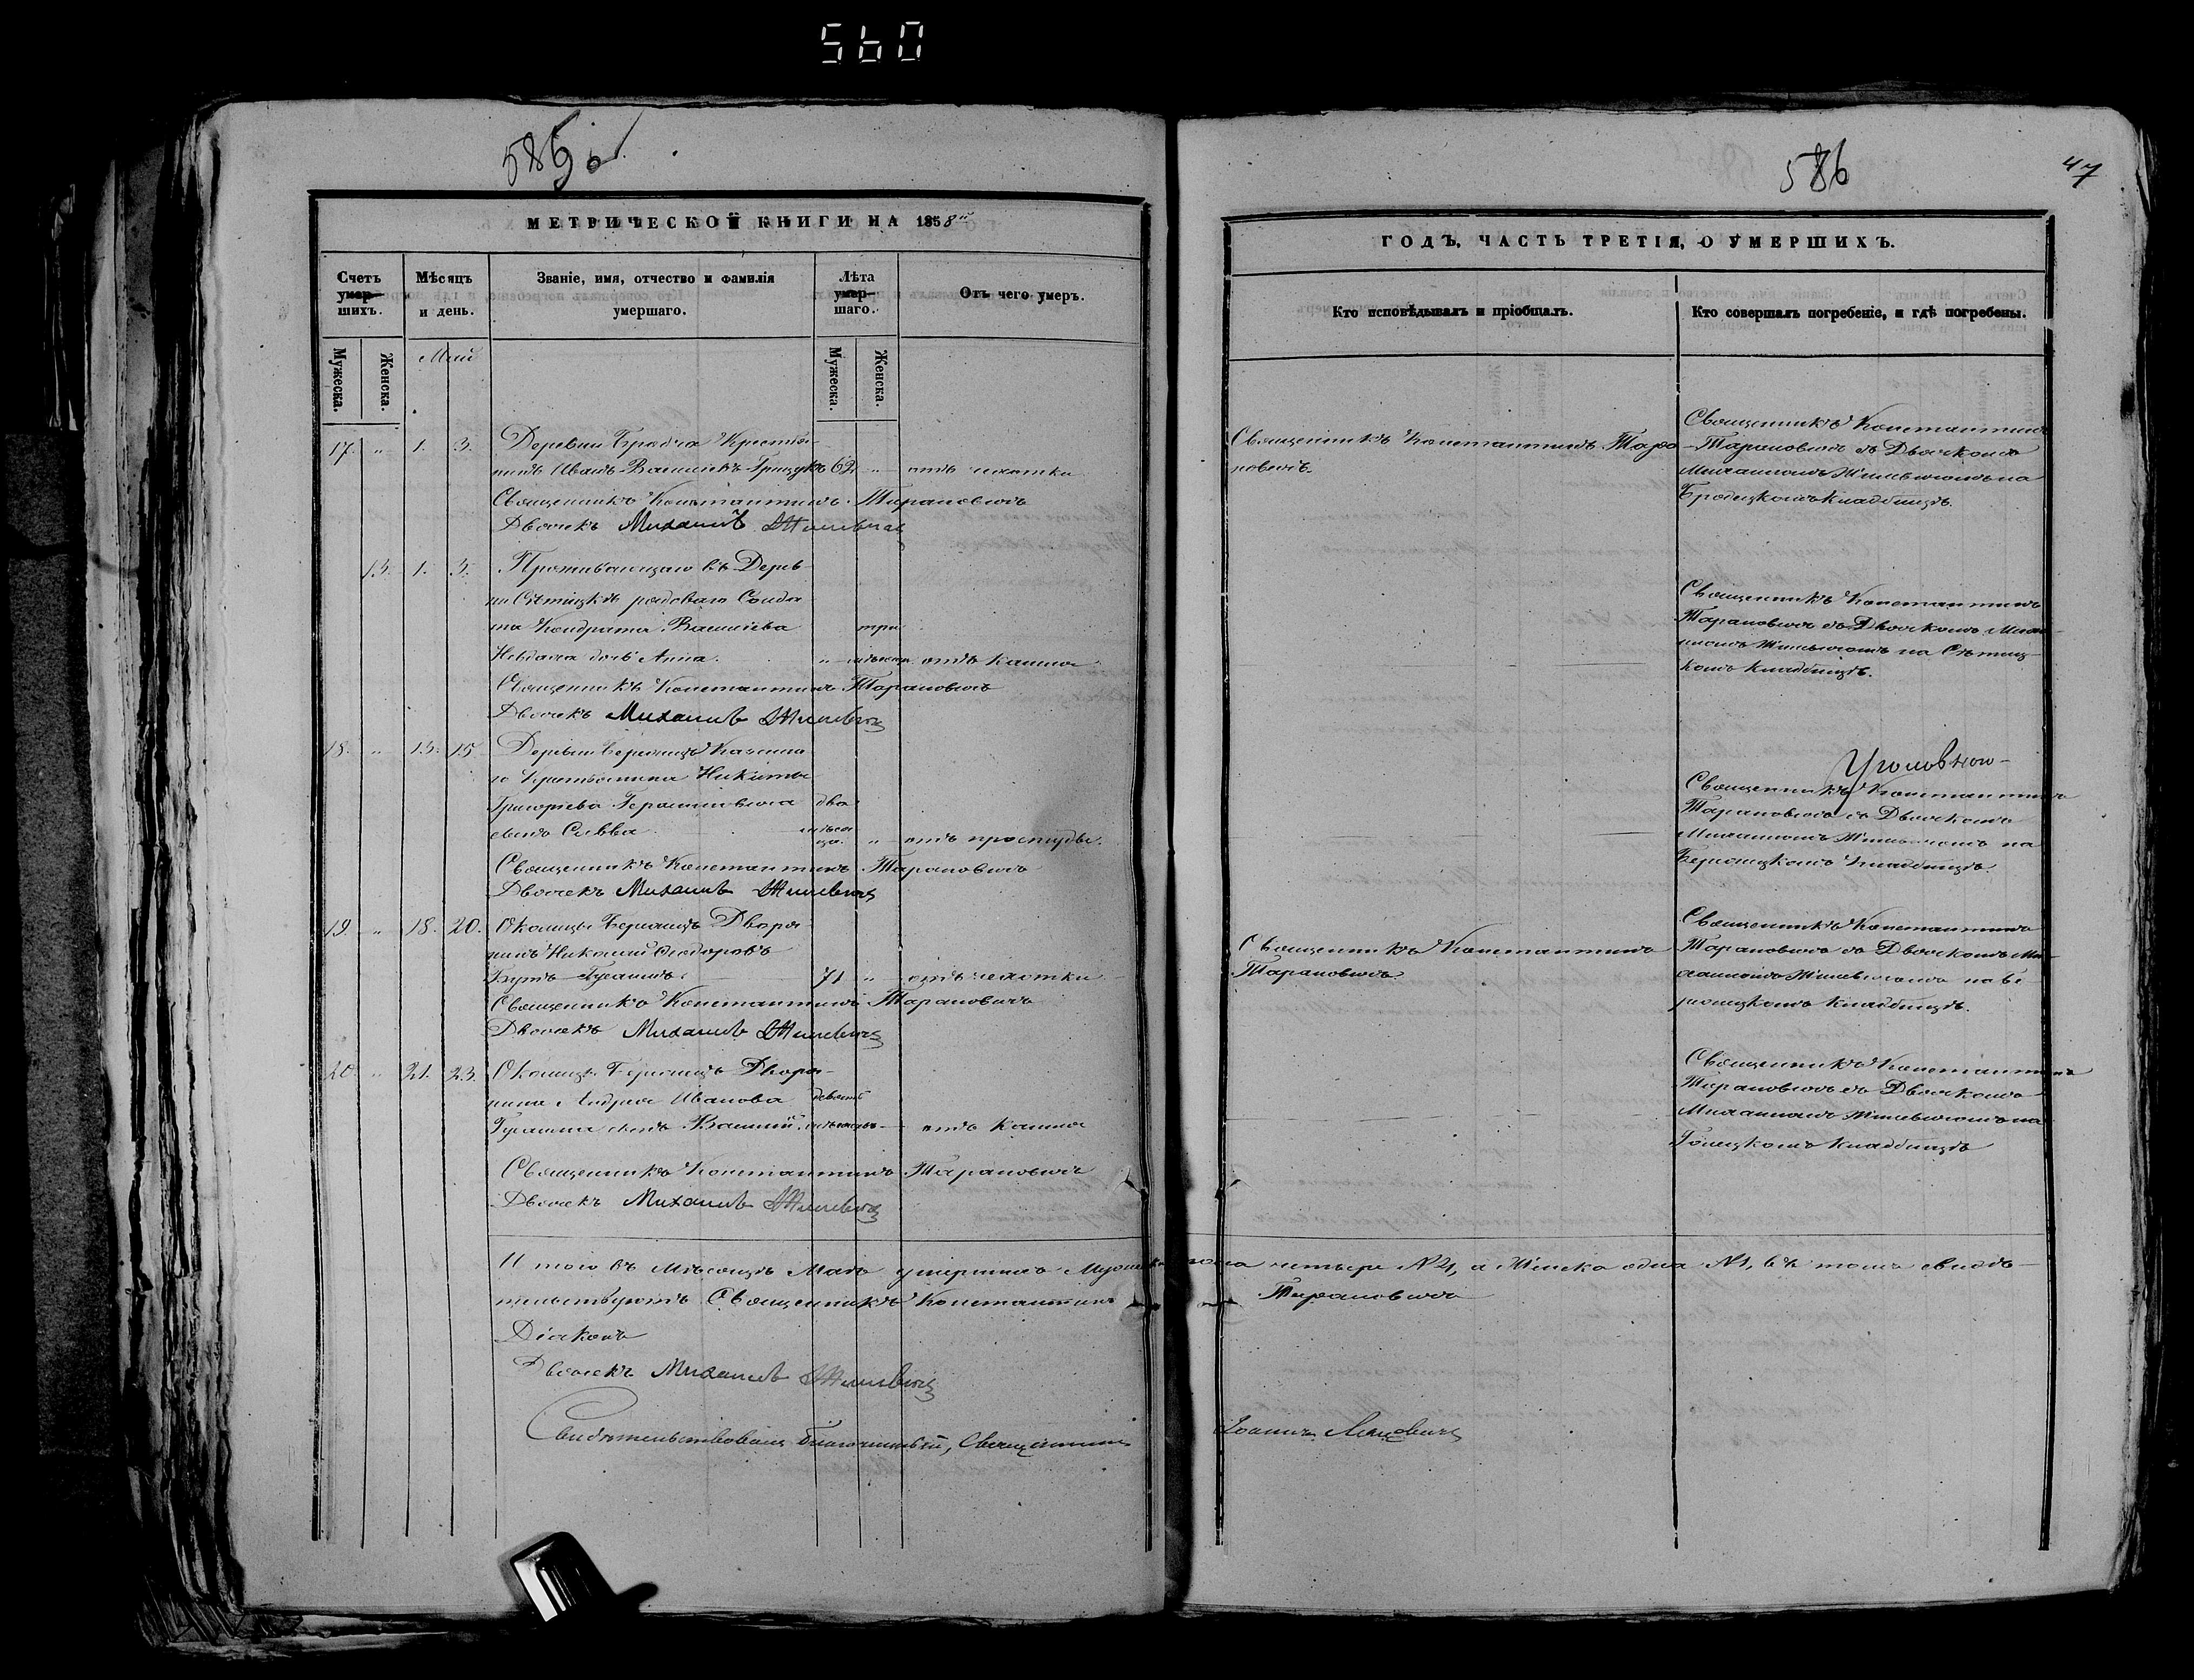 560
585 об
МЕТРИЧЕСКОЙ КНИГИ НА 1858й
Счетъ умер-шихъ.
Мѣсяцъ и день.
Званіе, имя, отчество и фамилія умершаго.
Лѣта умер-шаго.
Отъ чего умеръ.
Мужеска.
Женска.
Май
Мужеска.
Женска.
17. " 1. 3. Деревни Бродча Крестья-
нинъ Иванъ Васильевъ Грицукъ 62 " отъ чахотки
Священникъ Константинъ Тарановичъ
Дьячекъ Михаилъ Жилевичъ
13. 1. 3. Проживающаго въ Дерев-
ни рядоваго Солда-
та Кондрата Васильева три
дочь Анна. " мѣсяца. отъ кашля
Священникъ Константинъ Тарановичъ
Дьячекъ Михаилъ Жилевичъ
18. " 13. 15. Деревни Казенна-
го Крестьянина Никиты
Григорьева два
сынъ Савва мѣся-
ца. " отъ простуды.
Священникъ Константинъ Тарановичъ
Дьячекъ Михаилъ Жилевичъ
19. " 18. 20. Околицы Дворя-
нинъ Николай Ѳедоровъ
71 " отъ чахотки
Священникъ Константинъ Тарановичъ
Дьячекъ Михаилъ Жилевичъ
20. " 21. 23. Околицы Дворя-
нина Андрея Иванова девять
сынъ Василій. мѣсяцевъ — отъ кашля
Священникъ Константинъ Тарановичъ
Дьячекъ Михаилъ Жилевичъ
Итого въ Мѣсяцѣ Маѣ умершихъ Мужеска
тельствуютъ Священникъ Константинъ
Діаконъ
Дьячекъ Михаилъ Жилевичъ
Свидѣтельствовалъ Благочинный, Священникъ
586
47
ГОДЪ, ЧАСТЬ ТРЕТІЯ, О УМЕРШИХЪ.
Кто исповѣдывалъ и пріобщалъ.
Кто совершалъ погребеніе, и гдѣ погребены.
Священникъ Константинъ Тара-
новичъ.
Священникъ Константинъ
Тарановичъ съ Дьячкомъ
Михаиломъ Жилевичемъ на
Бродецкомъ кладбищѣ.
Священникъ Константинъ
Тарановичъ съ Дьячкомъ Миха-
иломъ Жилевичемъ на
комъ кладбищѣ.
Священникъ Константинъ
Тарановичъ съ Дьячкомъ
Михаиломъ Жилевичемъ на
кладбищѣ.
Священникъ Константинъ
Тарановичъ
Священникъ Константинъ
Тарановичъ съ Дьячкомъ Ми-
хаиломъ Жилевичемъ на
кладбищѣ.
Священникъ Константинъ
Тарановичъ съ Дьячкомъ
Михаиломъ Жилевичемъ на
кладбищѣ
пола четыре №4, а Женска одна №1, въ томъ свидѣ-
Тарановичъ
Іоаннъ